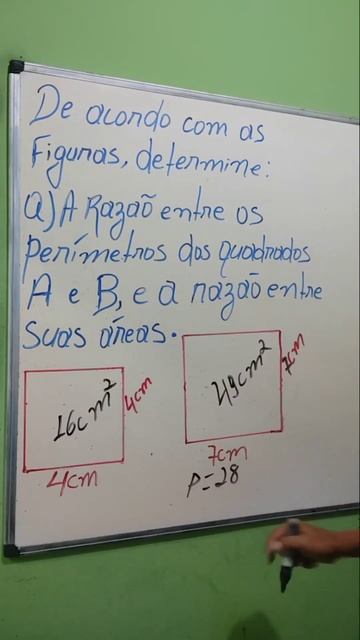 De acordo com as
Figuras, determine:
a) A Razaõ entre os
perímetros dos quadrados
A e B, e a razaõ entre
suas áreas.
16cm²
4cm
4cm
49cm²
7cm
7cm
P=28